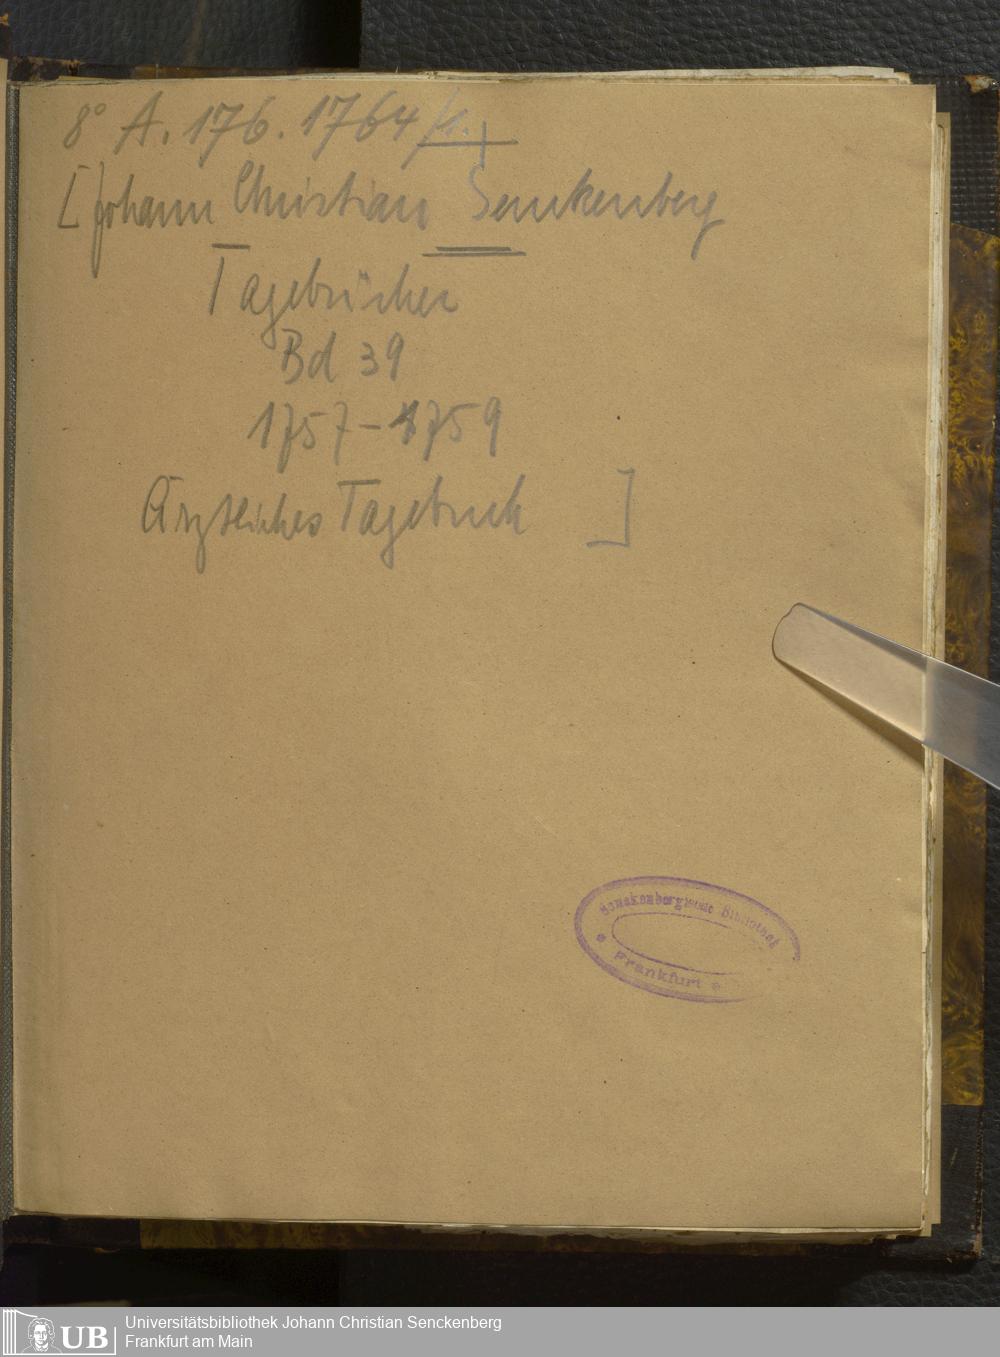 8° A. 176. 1764/1.
[Johann Christian Senckenberg
Tagebücher
Bd 39
1757-1759
Ärztliches Tagebuch ]
Senckenbergische Bibliothek
Frankfurt
UB
Universitätsbibliothek Johann Christian Senckenberg
Frankfurt am Main